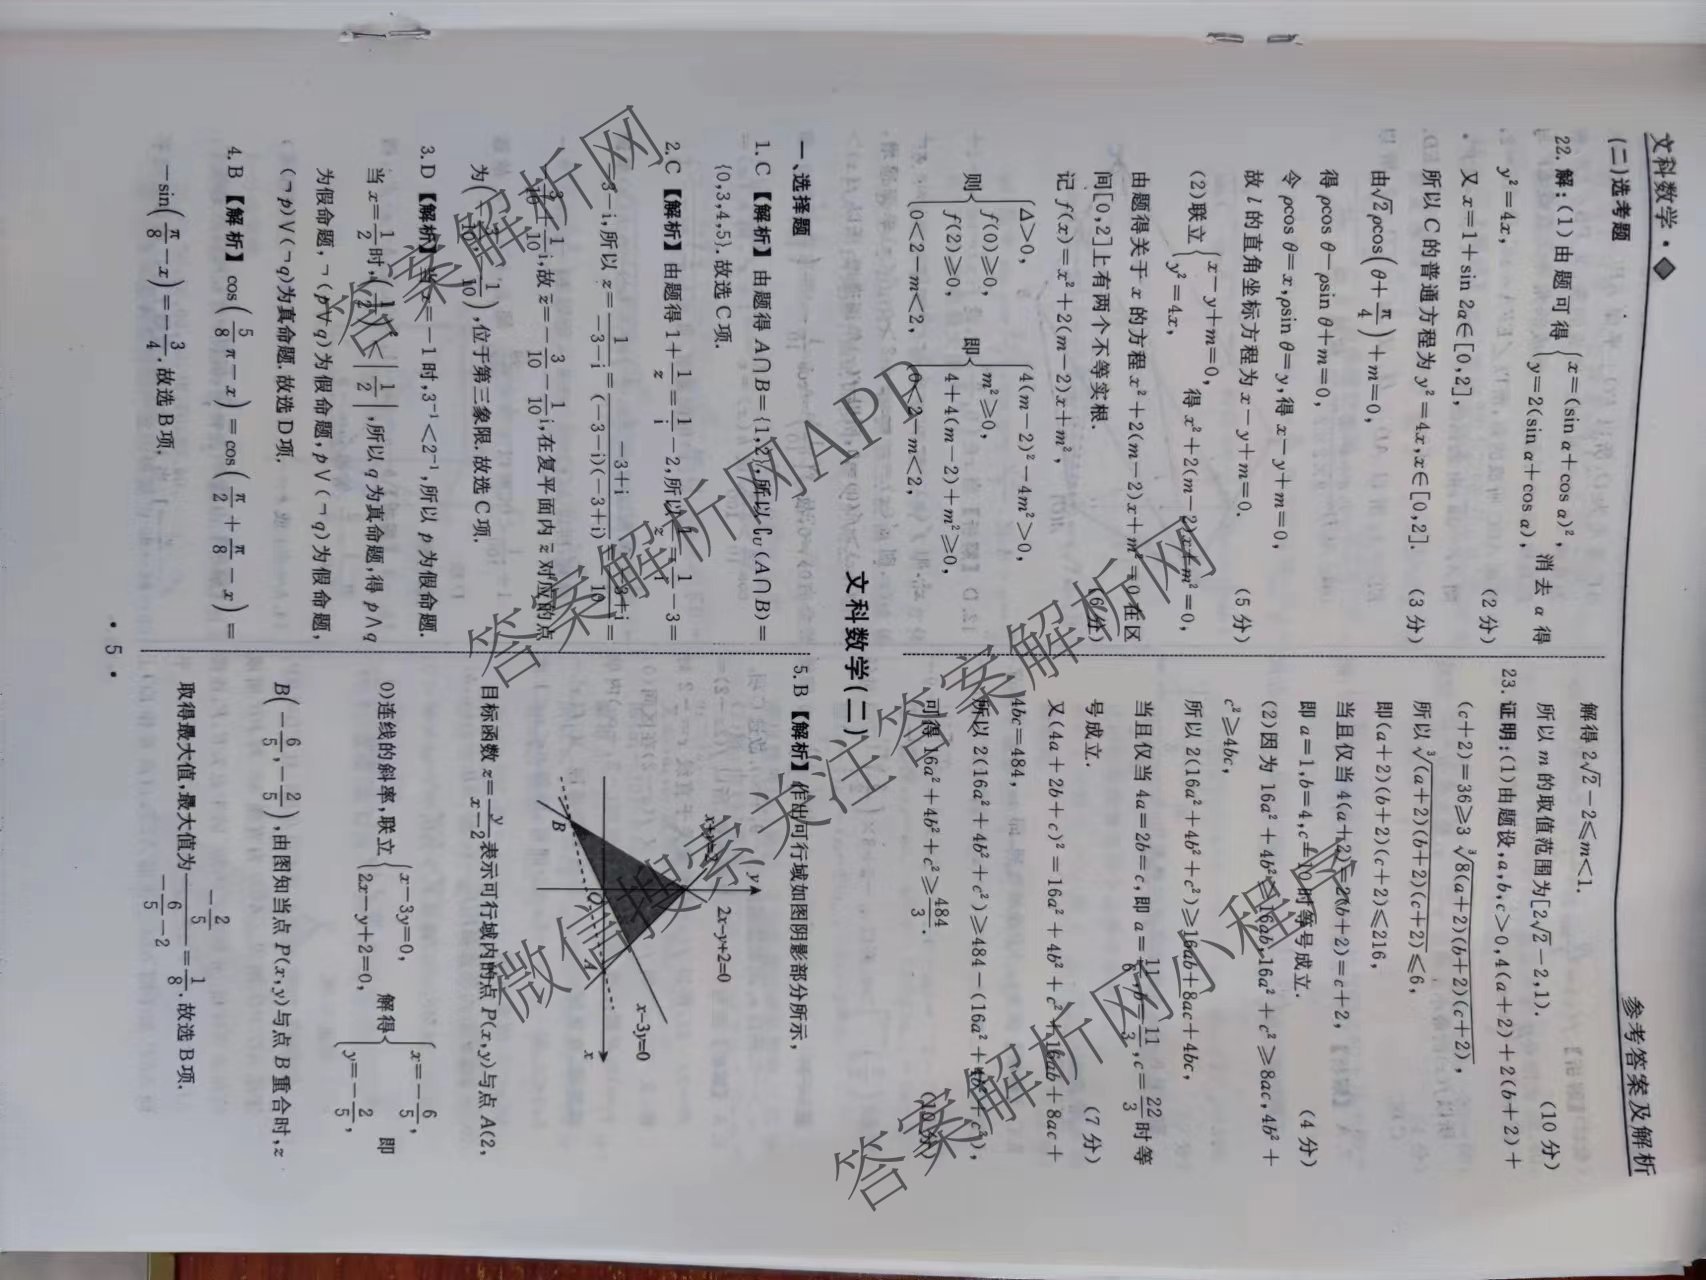 文科数学·◆
参考答案及解析
(二)选考题
22. 解:(1)由题可得{x=(sin α+cos α)², y=2(sin α+cos α), 消去 α 得
y²=4x, (2分)
又 x=1+sin 2α∈[0,2],
所以 C 的普通方程为 y²=4x,x∈[0,2]. (3分)
由√2ρcos(θ+π/4)+m=0,
得 ρcos θ-ρsin θ+m=0,
令 ρcos θ=x,ρsin θ=y,得 x-y+m=0,
故 l 的直角坐标方程为 x-y+m=0. (5分)
(2)联立{x-y+m=0, y²=4x, 得 x²+2(m-2)x+m²=0,
由题得关于 x 的方程 x²+2(m-2)x+m²=0 在区
间[0,2]上有两个不等实根. (6分)
记 f(x)=x²+2(m-2)x+m²,
则{Δ>0, f(0)≥0, f(2)≥0, 0<2-m<2, 即{4(m-2)²-4m²>0, m²≥0, 4+4(m-2)+m²≥0, 0<2-m<2,
解得 2√2-2≤m<1.
所以 m 的取值范围为[2√2-2,1). (10分)
23. 证明:(1)由题设,a,b,c>0,4(a+2)+2(b+2)+
(c+2)=36≥3∛8(a+2)(b+2)(c+2),
所以∛(a+2)(b+2)(c+2)≤6,
即(a+2)(b+2)(c+2)≤216,
当且仅当 4(a+2)=2(b+2)=c+2,
即 a=1,b=4,c=10 时等号成立. (4分)
(2)因为 16a²+4b²≥16ab,16a²+c²≥8ac,4b²+
c²≥4bc,
所以 2(16a²+4b²+c²)≥16ab+8ac+4bc,
当且仅当 4a=2b=c,即 a=11/6,b=11/3,c=22/3时等
号成立. (7分)
又(4a+2b+c)²=16a²+4b²+c²+16ab+8ac+
4bc=484,
所以 2(16a²+4b²+c²)≥484-(16a²+4b²+c²),
可得 16a²+4b²+c²≥484/3. (10分)
文科数学(二)
一、选择题
1. C 【解析】由题得 A∩B={1,2},所以∁U(A∩B)=
{0,3,4,5}.故选 C 项.
2. C 【解析】由题得 1+1/z=1/i-2,所以1/z=1/i-3=
-3-i,所以 z=1/(-3-i)=(-3+i)/((-3-i)(-3+i))=(-3+i)/10=
-3/10+1/10i,故z̄=-3/10-1/10i,在复平面内z̄对应的点
为(-3/10,-1/10),位于第三象限.故选 C 项.
3. D 【解析】当 x=-1 时,3⁻¹<2⁻¹,所以 p 为假命题.
当 x=1/2时,(1/2)²<|1/2|,所以 q 为真命题,得 p∧q
为假命题,¬(p∨q)为假命题,p∨(¬q)为假命题,
(¬p)∨(¬q)为真命题.故选 D 项.
4. B 【解析】cos(5/8π-x)=cos(π/2+π/8-x)=
-sin(π/8-x)=-3/4.故选 B 项.
5. B 【解析】作出可行域如图阴影部分所示,
y
2x-y+2=0
B
O
A
x
x-3y=0
目标函数 z=y/(x-2)表示可行域内的点 P(x,y)与点 A(2,
0)连线的斜率,联立{x-3y=0, 2x-y+2=0, 解得{x=-6/5, y=-2/5, 即
B(-6/5,-2/5),由图知当点 P(x,y)与点 B 重合时,z
取得最大值,最大值为(-2/5)/(-6/5-2)=1/8.故选 B 项.
·5·
答案解析网
答案解析网APP
微信搜索关注答案解析网
答案解析网小程序